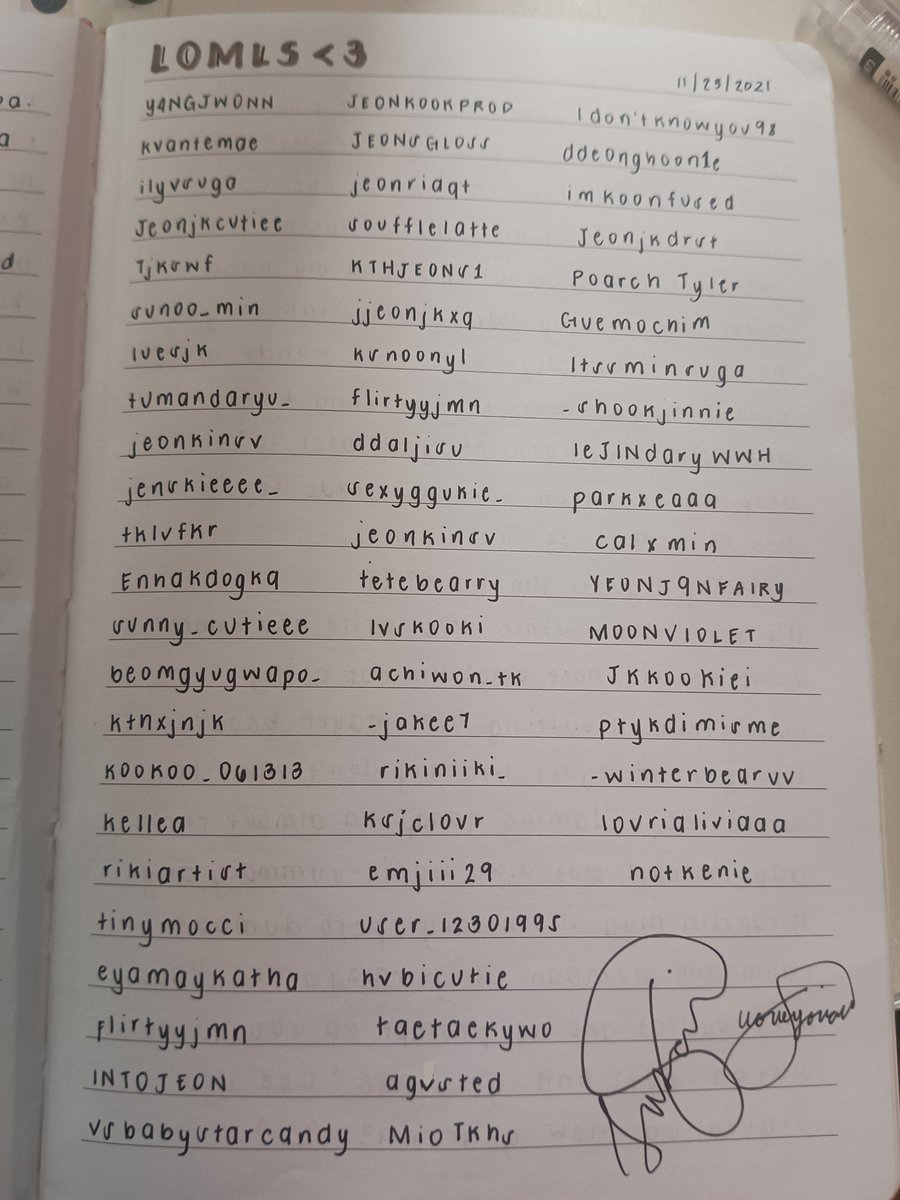 LOMLS <3
11/25/2021
Y4NGJWONN JEONKOOKPROD I don'tknowyou98
kvantemae JEONSGLOSS ddeonghoon1e
ilyvsuga jeonriaqt imkoonfused
Jeonjkcutiee soufflelatte Jeonjkdrst
7jkswf KTHJEONS1 Poarch Tyler
sunoo_min jjeonjkxq Guemochim
lvesjk ksnoonyl Itssminsuga
tumandaryu_ flirtyyjmn -shookjinnie
jeonkinsv ddaljisu leJINdaryWWH
jenskieeee_ sexyggukie_ parkxeaaa
tklvfkr jeonkinsv calxmin
Ennakdogka tetebearry YEONJ9NFAIRY
sunny_cutieee lvskooki MOONVIOLET
beomgyugwapo_ achiwon_tk JKkookiei
kthxjnjk -jakee7 ptykdimisme
KOOKOO_061313 rikiniiki_ -winterbearvv
kellea ksjclovr lovrialiviaaa
rikiartist emjiii29 notkenie
tinymocci user_12301995
eyamaykatha hvbicutie
flirtyyjmn taetaekywo
INTOJEON agusted
vsbabystarcandy MioTkhs